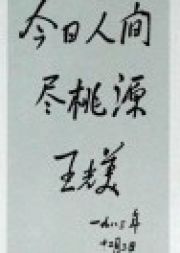 今日人间
尽桃源
王光美
一九八三年
十二月三日